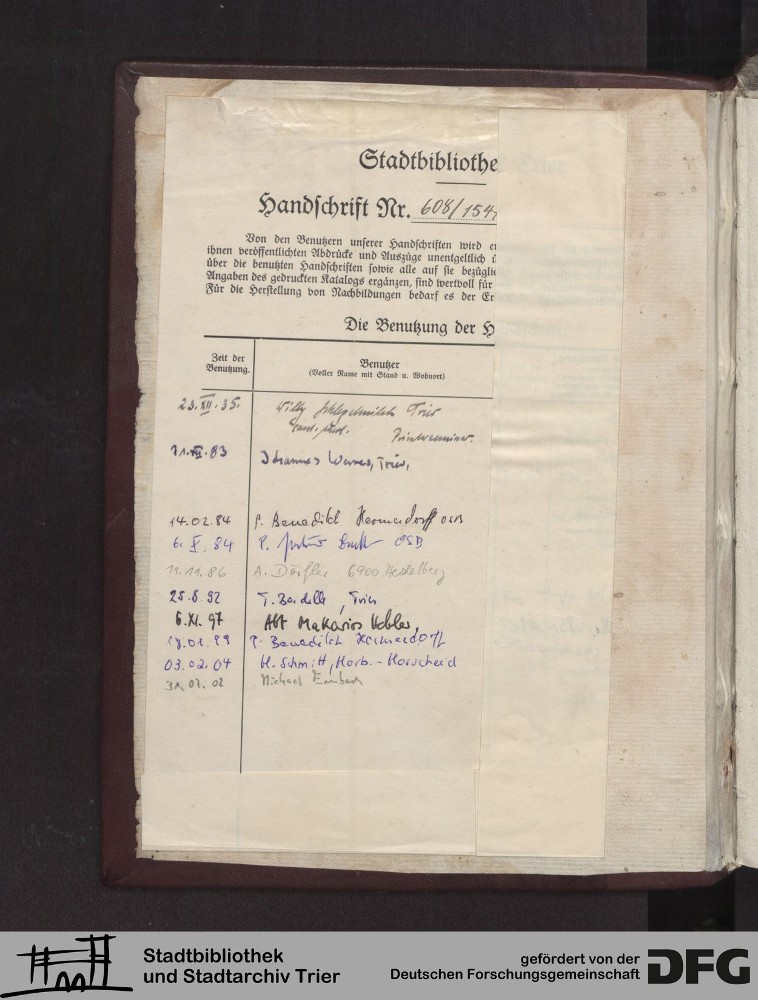 Stadtbibliothe
Handschrift Nr. 608/154
Von den Benutzern unserer Handschriften wird e
ihnen veröffentlichten Abdrücke und Auszüge unentgeltlich
über die benutzten Handschriften sowie alle auf sie bezügli
Angaben des gedruckten Katalogs ergänzen, sind wertvoll für
Für die Herstellung von Nachbildungen bedarf es der Er
Die Benutzung der H
Zeit der
Benutzung.
Benutzer
(Voller Name mit Stand u. Wohnort)
23. XII. 35. Willy Trier
Priesterseminar.
83 Johannes Werner, Trier,
14.02.84 P. Benedikt Hermesdorff OSB
6. X. 84 P. OSB
11.11.86 A. Dörfler 6900 Heidelberg
25.8.92 T. Bardelle, Trier
6.XI.97 Abt Makarios Hebler,
P. Benedikt Hermesdorff
03.02.04 H. Schmitt, Morb.-Morscheid
31.07.02 Michael Embach
Stadtbibliothek
und Stadtarchiv Trier
gefördert von der
Deutschen Forschungsgemeinschaft
DFG